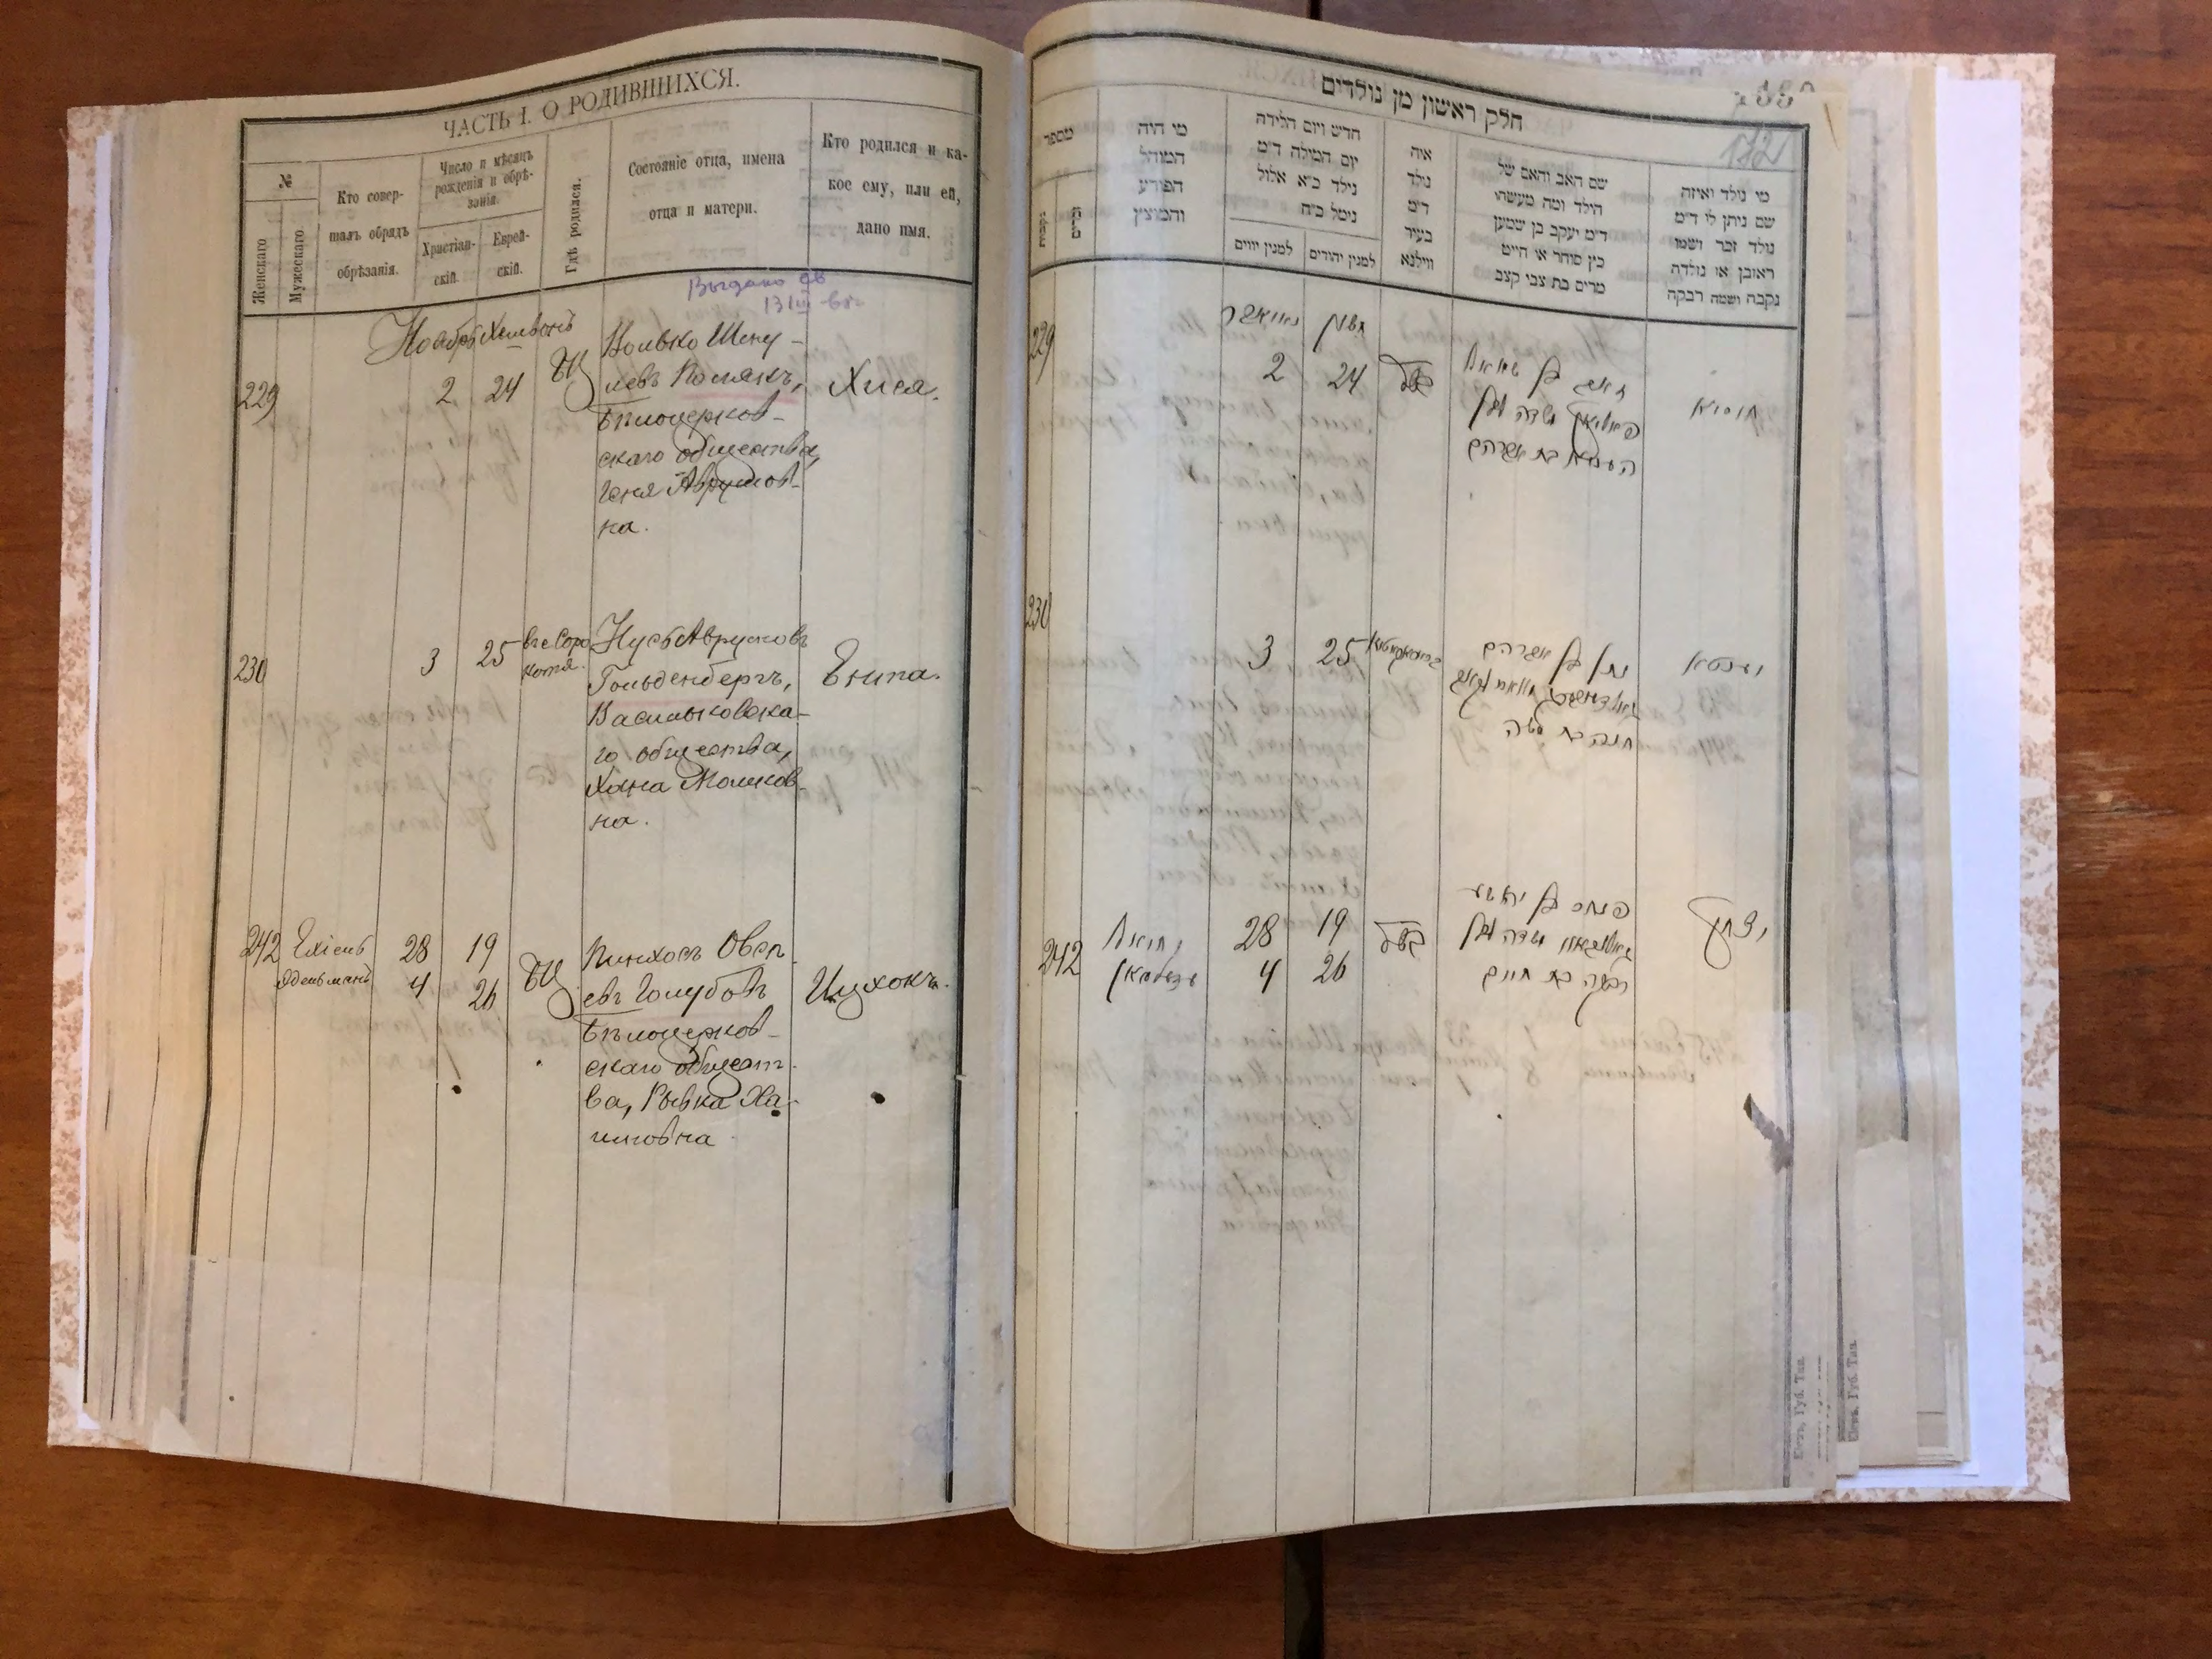 ЧАСТЬ I. О РОДИВШИХСЯ.
№
Женскаго
Мужескаго
Кто совер-
шалъ обрядъ
обрѣзанія.
Число и мѣсяцъ
рожденія и обрѣ-
занія.
Христіан-
скій.
Еврей-
скій.
Гдѣ родился.
Состояніе отца, имена
отца и матери.
Кто родился и ка-
кое ему, или ей,
дано имя.
Выдано св
Ноябрь Хешвонъ
229
2
24
БЦ
Волько Шму-
левъ Полякъ,
Бѣлоцерков-
скаго общества,
Геня Аврумов-
на.
Хися.
230
3
25
Нусь Аврумовъ
Гольденбергъ,
Васильковска-
го общества,
Хана Мошков-
на.
Ента.
242
Ехіель
Эдельманъ
28
4
19
26
БЦ
Пинхосъ Овсѣ-
евъ Голубовъ
Бѣлоцерков-
скаго общест-
ва, Рывка Ха-
имовна
Ицхокъ.
חלק ראשון מן נולדים
132
מספר
נקבות
זכרים
מי היה
המוהל
הפורע
והמוצץ
חדש ויום הלידה
יום המילה ד״מ
נילד כ״א אלול
נימל כ״ח
למנין יווים
למנין יהודים
איה
נולד
ד״מ
בעיר
ווילנא
שם האב והאם של
הילד ומה מעשהו
ד״מ יעקב בן שמעון
כ״ץ סוחר או חייט
מרים בת צבי קצב
מי נולד ואיזה
שם ניתן לו ד״מ
נולד זכר ושמו
ראובן או נולדה
נקבה ושמה רבקה
נאוואבר
חשון
229
2
24
בן שמואל
פאליאק שדה לבן
העניא בת אברהם
חוסיא
230
3
25
נתן בן אברהם
חנה בת משה
יענטא
242
יחיאל
עדעלמאן
28
4
19
26
פנחס בן יהושע
שדה לבן
רבקה בת חיים
יצחק
Кіевъ, Губ. Тип.
Кіевъ. Губ. Тип.